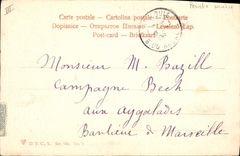 Carte postale – Cartolina postale – Postkarte
Dopisnice – Открытое Письмо – Levelező-Lap
Post-card – Briefkaart
Monsieur M. Bazill
Campagne Beek
aux Aygalades
Banlieue de Marseille